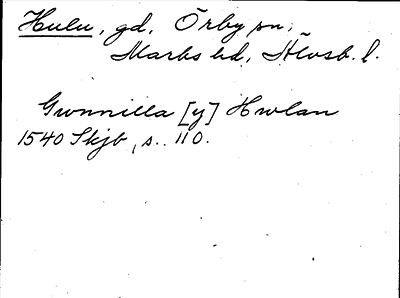 Hulu, gd, Örby sn,
Marks hd, Älvsb. l.
Gwnnilla [y] Hwlan
1540 Skjb, s. 110.